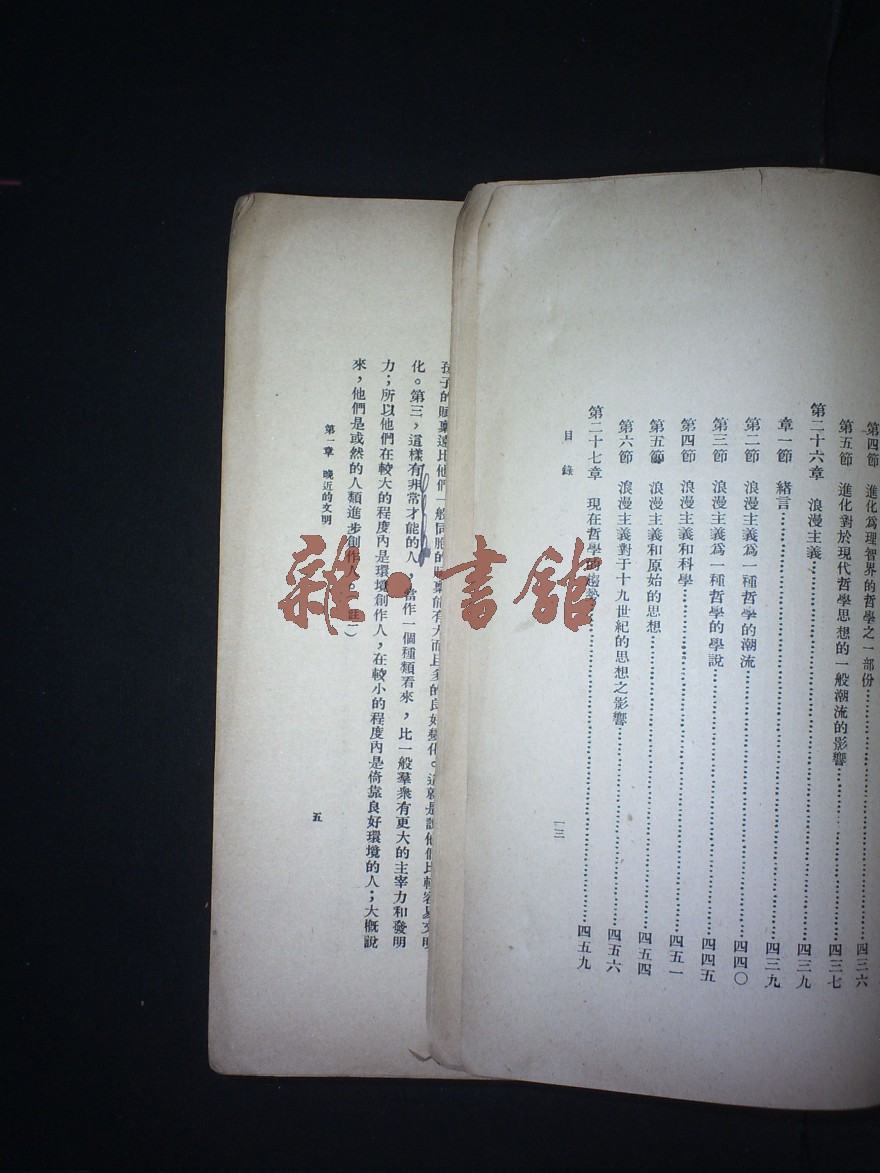 第四節　進化爲理智界的哲學之一部份……四三六
第五節　進化對於現代哲學思想的一般潮流的影響……四三七
第二十六章　浪漫主義……四三九
章一節　緒言……四三九
第二節　浪漫主義爲一種哲學的潮流……四四〇
第三節　浪漫主義爲一種哲學的學說……四四五
第四節　浪漫主義和科學……四五一
第五節　浪漫主義和原始的思想……四五四
第六節　浪漫主義對于十九世紀的思想之影響……四五六
第二十七章　現在哲學的趨勢……四五九
目錄
一三
孩子的賦稟遠比他們一般同胞的賦稟能有大而且多的良好變化。這就是說他們比較容易文明
化。第三，這樣有非常才能的人，當作一個種類看來，比一般羣衆有更大的主宰力和發明
力；所以他們在較大的程度內是環境創作人，在較小的程度內是倚靠良好環境的人；大概說
來，他們是或然的人類進步創作人。（註一）
第一章　晚近的文明
五
雜·書館